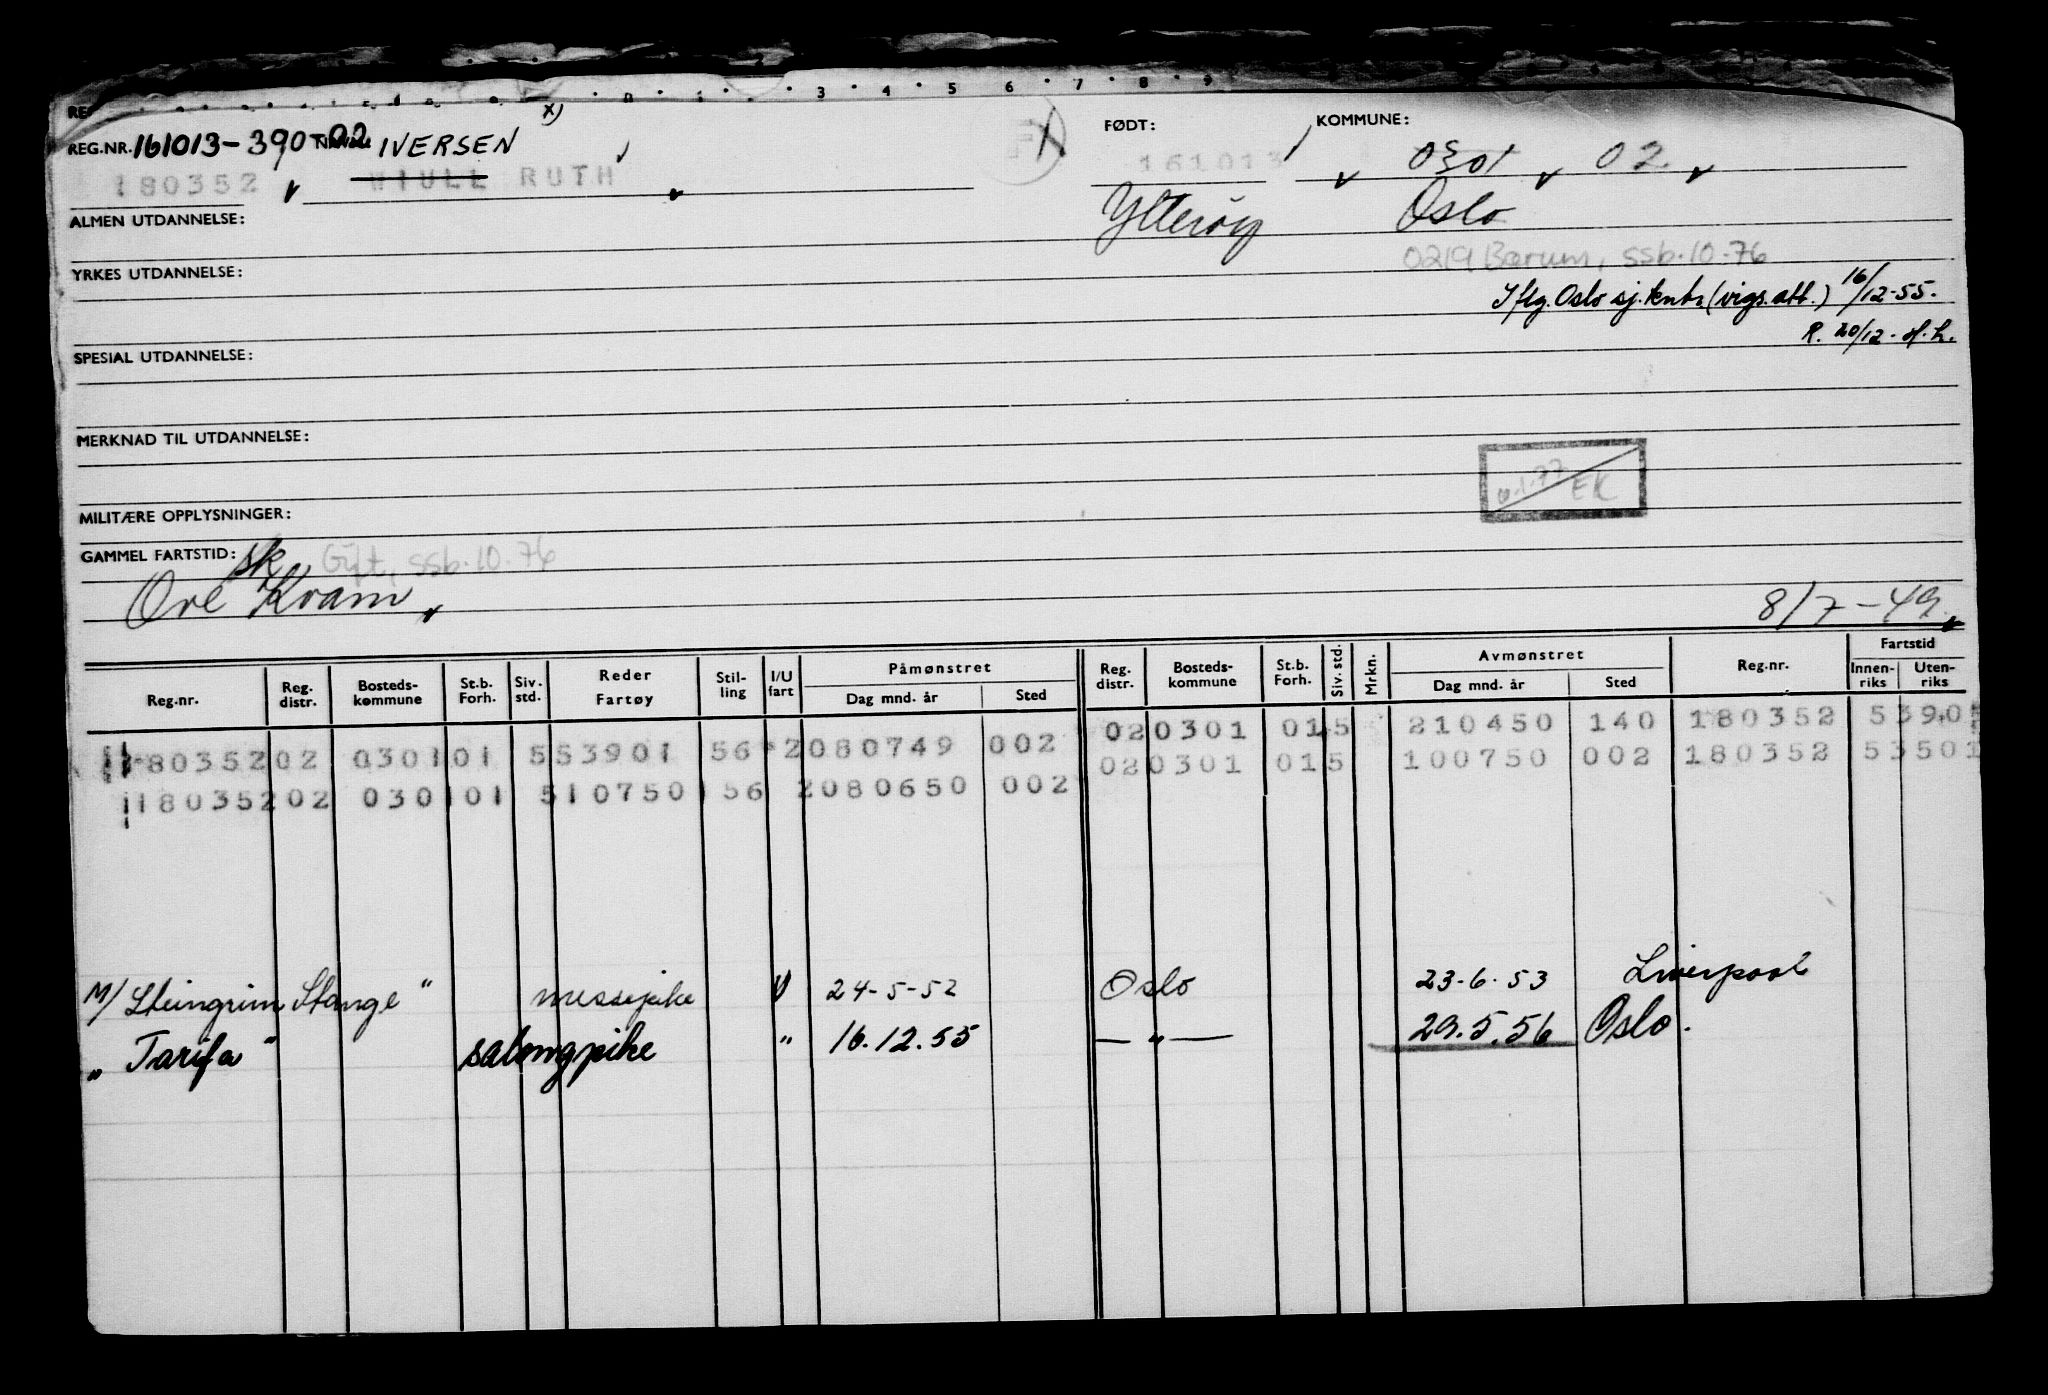 3 4 5 6 7 8 9
x)
REG.NR. 161013-390-02 IVERSEN FØDT: KOMMUNE:
180352 HIULL RUTH 161013 0301 02
ALMEN UTDANNELSE: Ytterøy Oslo
0219 Bærum, ssb. 10-76
YRKES UTDANNELSE:
Iflg. Oslo sj.kntr. (vigs.att.) 16/12-55.
R. 20/12-
SPESIAL UTDANNELSE:
MERKNAD TIL UTDANNELSE:
EK
MILITÆRE OPPLYSNINGER:
GAMMEL FARTSTID: sk Gift, ssb. 10-76
Ove Kvam 8/7-49
Reg.nr. Reg. distr. Bosteds- kommune St.b. Forh. Siv. std. Reder Fartøy Stil- ling I/U fart Påmønstret Dag mnd. år Sted Reg. distr. Bosteds- kommune St.b. Forh. Siv. std. Mrkn. Avmønstret Dag mnd. år Sted Reg.nr. Fartstid Innen- riks Uten- riks
180352 02 0301 01 5 53901 56 2 080749 002 02 0301 01 5 210450 140 180352 53901
180352 02 0301 01 5 10750 156 2 080650 002 02 0301 01 5 100750 002 180352 53501
M/ Steingrim Stange" messepike U 24-5-52 Oslo 23-6-53 Liverpool
" Tarifa" salongpike " 16.12.55 — " — 29.5.56 Oslo.